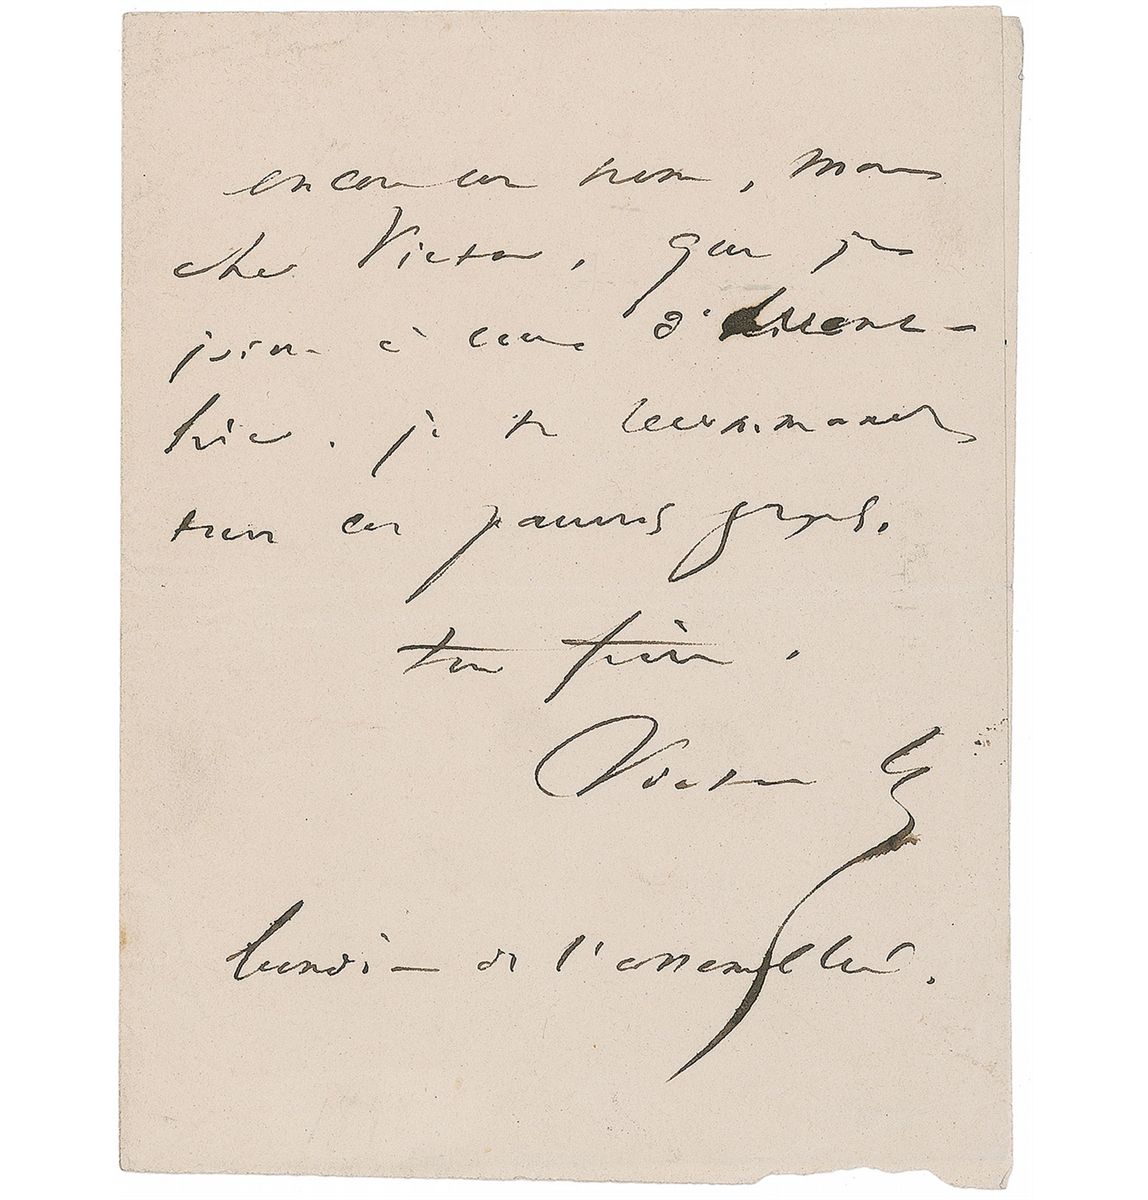 encore un nom, mon
cher Victor, que je
joins à ceux d'avant-
hier. je te recommande
tous ces pauvres gens.
ton frère.
Victor H
lundi — de l'assemblée.